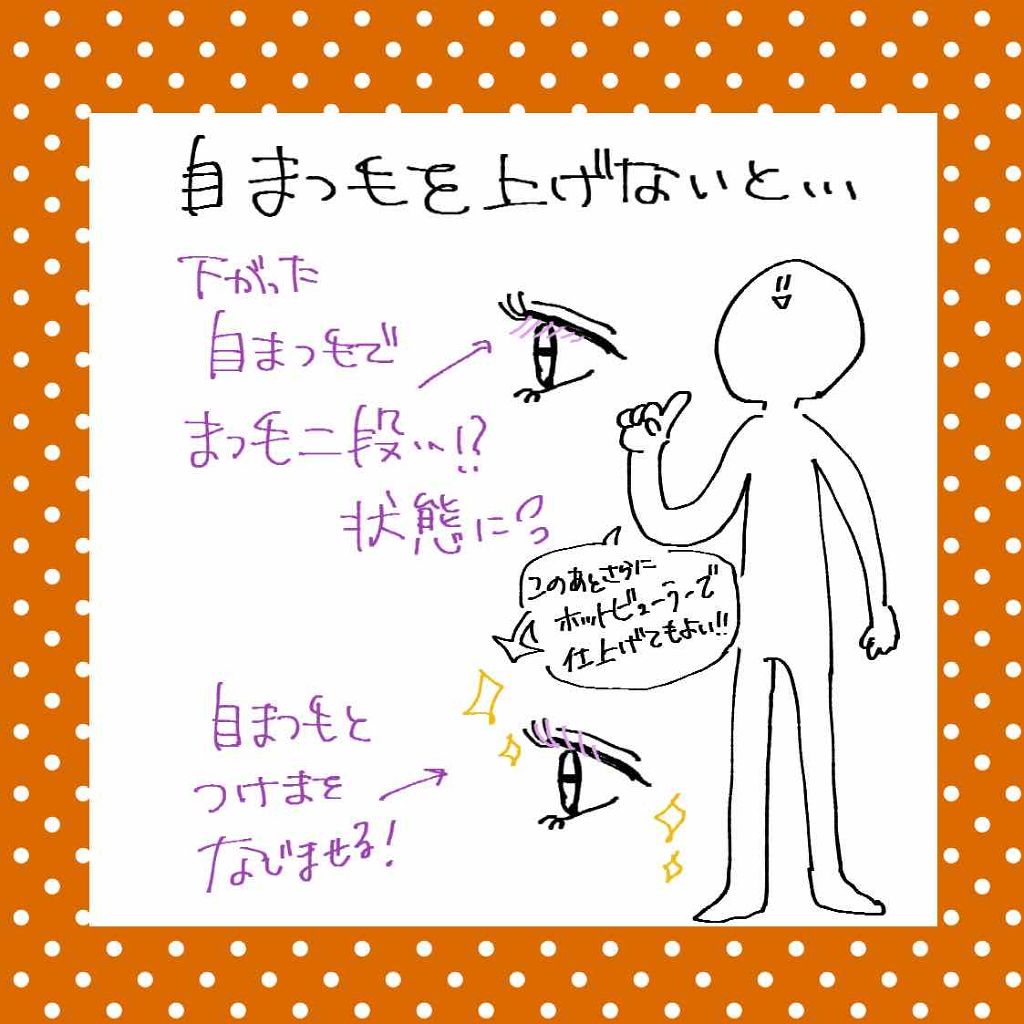 自まつ毛を上げないと…
下がった
自まつ毛で
まつ毛二段…!?
状態に
このあとさらに
ホットビューラーで
仕上げてもよい!!
自まつ毛と
つけまを
なじませる!